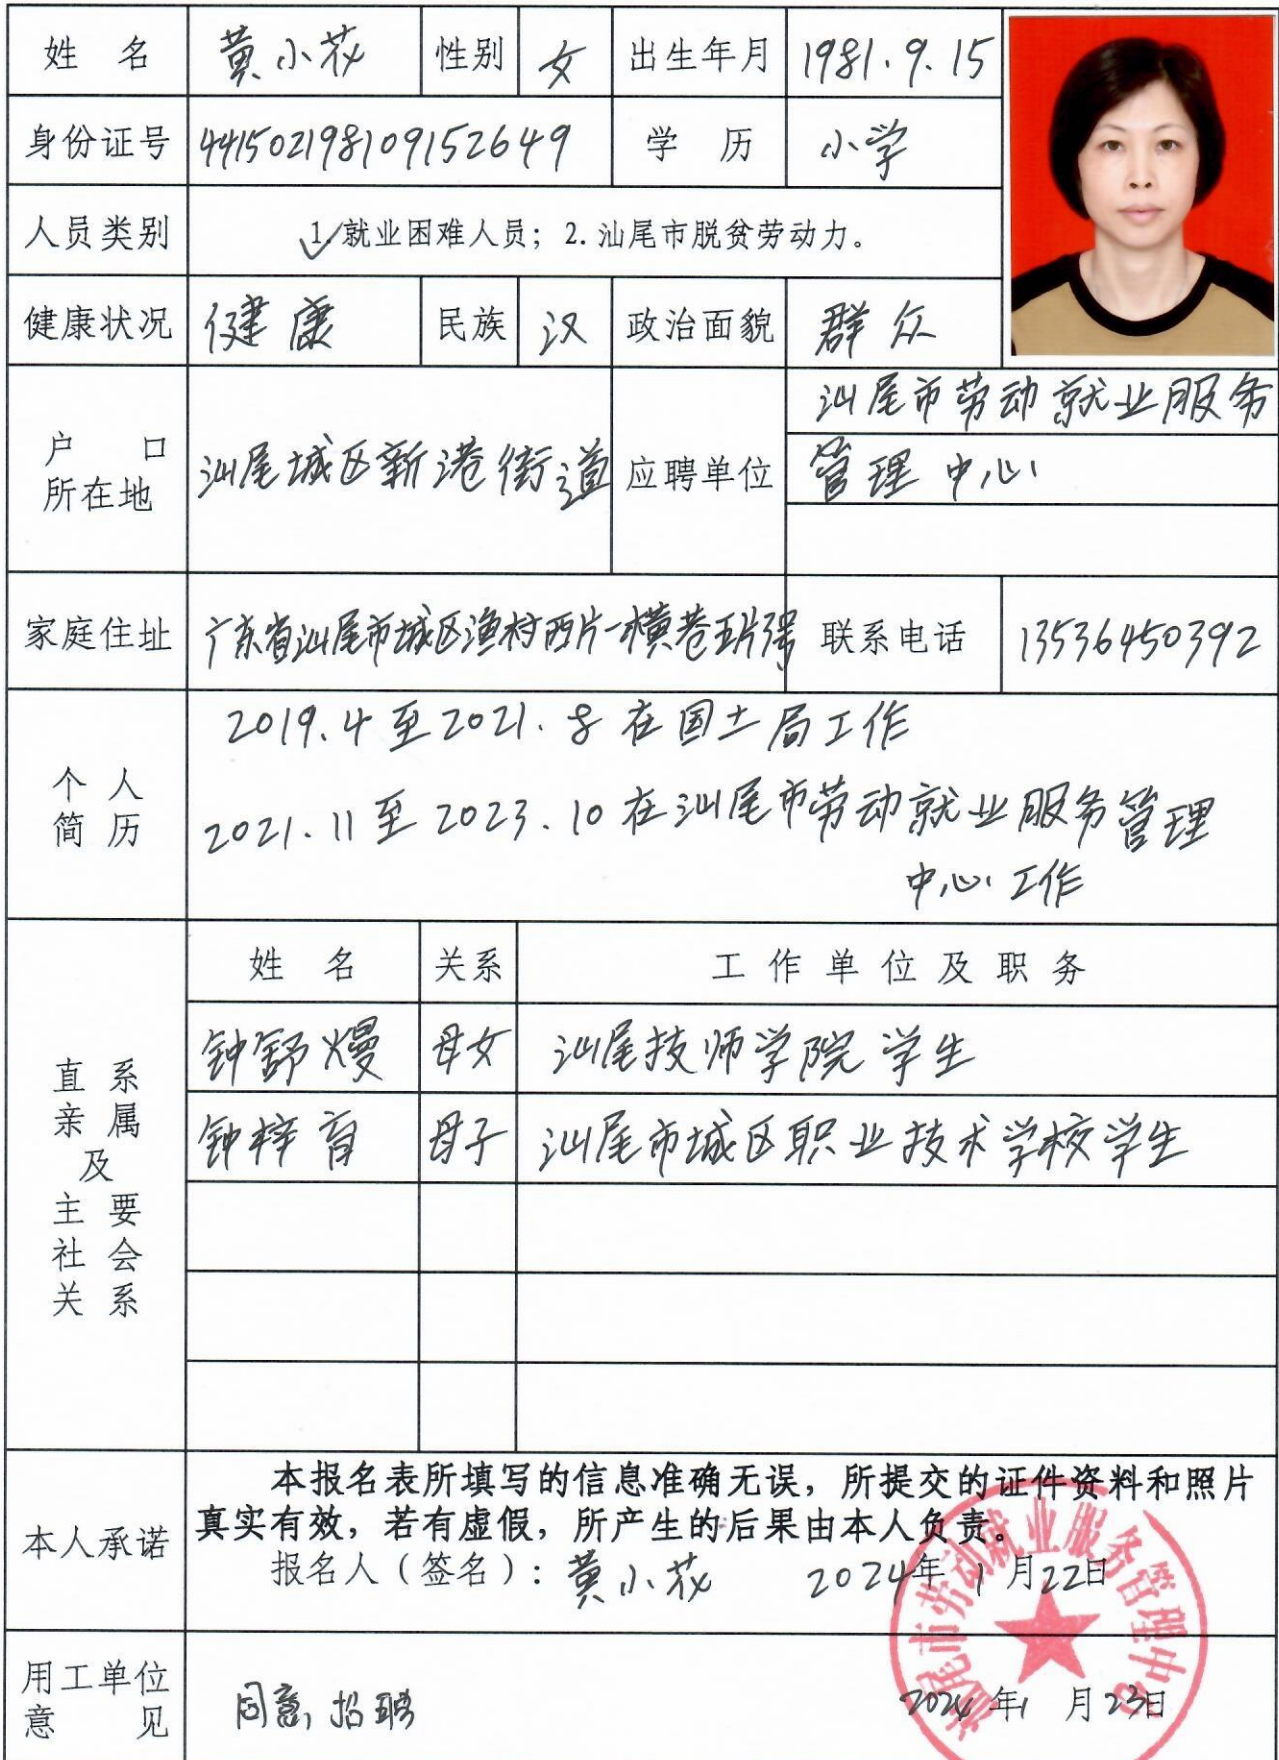 姓 名 黄小花 性别 女 出生年月 1981.9.15
身份证号 441502198109152649 学 历 小学
人员类别 1.✓就业困难人员；2.汕尾市脱贫劳动力。
健康状况 健康 民族 汉 政治面貌 群众
户 口
所在地 汕尾城区新港街道 应聘单位 汕尾市劳动就业服务
管理中心
家庭住址 广东省汕尾市城区渔村西片一横巷 联系电话 13536450392
个 人
简 历
2019.4至2021.8在国土局工作
2021.11至2023.10在汕尾市劳动就业服务管理
中心工作
直 系
亲 属
及
主 要
社 会
关 系
姓 名 关系 工作单位及职务
钟舒熳 母女 汕尾技师学院 学生
钟梓育 母子 汕尾市城区职业技术学校学生
本人承诺
本报名表所填写的信息准确无误，所提交的证件资料和照片
真实有效，若有虚假，所产生的后果由本人负责。
报名人（签名）：黄小花 2024年1月22日
用工单位
意 见
同意招聘 2024年1月23日
汕尾市劳动就业服务管理中心